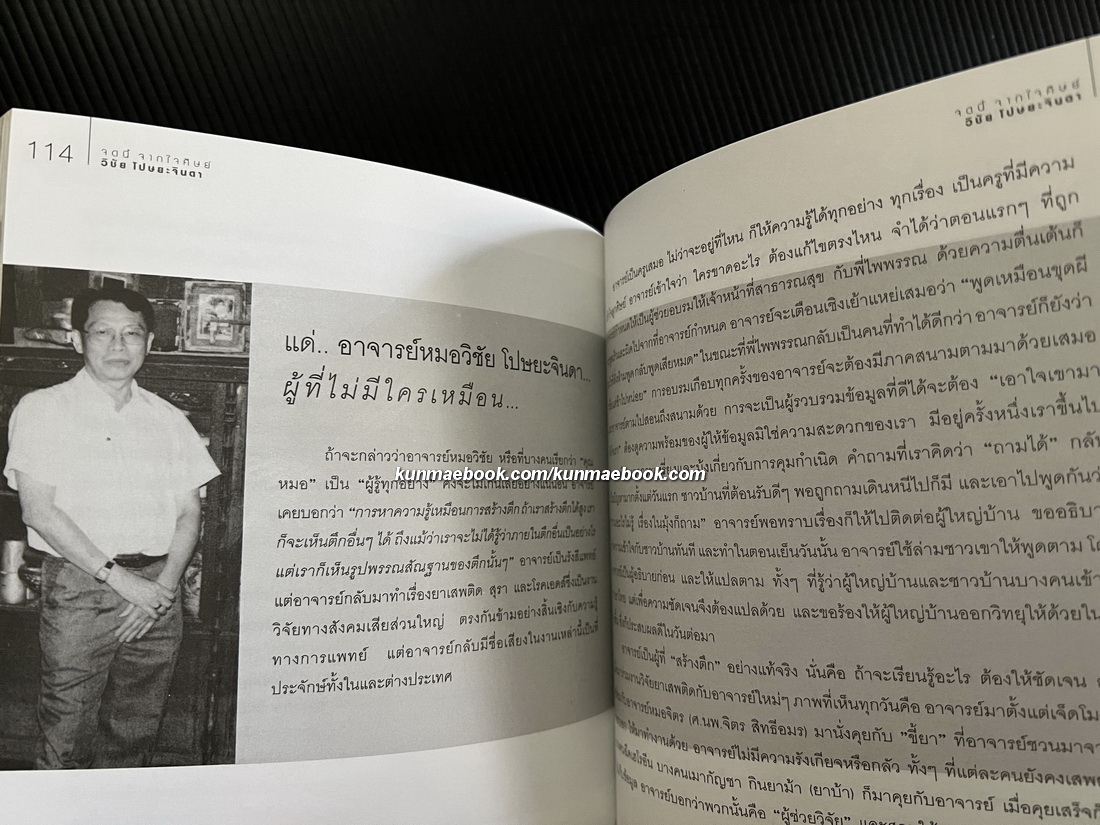 114
จดนี้ จากใจศิษย์
วิชัย โปษยะจินดา
แด่.. อาจารย์หมอวิชัย โปษยะจินดา...
ผู้ที่ไม่มีใครเหมือน...
ถ้าจะกล่าวว่าอาจารย์หมอวิชัย หรือที่บางคนเรียกว่า "คุณ
หมอ" เป็น "ผู้รู้ทุกอย่าง" คงจะไม่เกินเลยอย่างแน่นอน อาจารย์
เคยบอกว่า "การหาความรู้เหมือนการสร้างตึก ถ้าเราสร้างตึกได้สูง เรา
ก็จะเห็นตึกอื่นๆ ได้ ถึงแม้ว่าเราจะไม่ได้รู้ว่าภายในตึกอื่นเป็นอย่างไร
แต่เราก็เห็นรูปพรรณสัณฐานของตึกนั้นๆ" อาจารย์เป็นรังสีแพทย์
แต่อาจารย์กลับมาทำเรื่องยาเสพติด สุรา และโรคเอดส์ซึ่งเป็นงาน
วิจัยทางสังคมเสียส่วนใหญ่ ตรงกันข้ามอย่างสิ้นเชิงกับความรู้
ทางการแพทย์ แต่อาจารย์กลับมีชื่อเสียงในงานเหล่านี้เป็นที่
ประจักษ์ทั้งในและต่างประเทศ
kunmaebook.com/kunmaebook.com
จดนี้ จากใจศิษย์
วิชัย โปษยะจินดา
อาจารย์เป็นครูเสมอ ไม่ว่าจะอยู่ที่ไหน ก็ให้ความรู้ได้ทุกอย่าง ทุกเรื่อง เป็นครูที่มีความ
อาจารย์เข้าใจว่า ใครขาดอะไร ต้องแก้ไขตรงไหน จำได้ว่าตอนแรกๆ ที่ถูก
ให้เป็นผู้ช่วยอบรมให้เจ้าหน้าที่สาธารณสุข กับพี่ไพพรรณ ด้วยความตื่นเต้นก็
ไปจากที่อาจารย์กำหนด อาจารย์จะเตือนเชิงเย้าแหย่เสมอว่า "พูดเหมือนขุดผี
พูดกลับพูดเสียหมด" ในขณะที่พี่ไพพรรณกลับเป็นคนที่ทำได้ดีกว่า อาจารย์ก็ยังว่า
การอบรมเกือบทุกครั้งของอาจารย์จะต้องมีภาคสนามตามมาด้วยเสมอ
ตามไปสอนถึงสนามด้วย การจะเป็นผู้รวบรวมข้อมูลที่ดีได้จะต้อง "เอาใจเขามา
ต้องดูความพร้อมของผู้ให้ข้อมูลมิใช่ความสะดวกของเรา มีอยู่ครั้งหนึ่งเราขึ้นไป
เกี่ยวกับการคุมกำเนิด คำถามที่เราคิดว่า "ถามได้" กลับ
ตั้งแต่วันแรก ชาวบ้านที่ต้อนรับดีๆ พอถูกถามเดินหนีไปก็มี และเอาไปพูดกันว่า
เรื่องในมุ้งก็ถาม" อาจารย์พอทราบเรื่องก็ให้ไปติดต่อผู้ใหญ่บ้าน ขออธิบา
เข้าใจกับชาวบ้านทันที และทำในตอนเย็นวันนั้น อาจารย์ใช้ล่ามชาวเขาให้พูดตาม โด
เป็นผู้อธิบายก่อน และให้แปลตาม ทั้งๆ ที่รู้ว่าผู้ใหญ่บ้านและชาวบ้านบางคนเข้า
แต่เพื่อความชัดเจนจึงต้องแปลด้วย และขอร้องให้ผู้ใหญ่บ้านออกวิทยุให้ด้วยใน
ซึ่งก็ประสบผลดีในวันต่อมา
อาจารย์เป็นผู้ที่ "สร้างตึก" อย่างแท้จริง นั่นคือ ถ้าจะเรียนรู้อะไร ต้องให้ชัดเจน
งานวิจัยยาเสพติดกับอาจารย์ใหม่ๆ ภาพที่เห็นทุกวันคือ อาจารย์มาตั้งแต่เจ็ดโม
กับอาจารย์หมอจิตร (ศ.นพ.จิตร สิทธีอมร) มานั่งคุยกับ "ขี้ยา" ที่อาจารย์ชวนมาจา
ให้มาทำงานด้วย อาจารย์ไม่มีความรังเกียจหรือกลัว ทั้งๆ ที่แต่ละคนยังคงเสพย
บางคนเมากัญชา กินยาม้า (ยาบ้า) ก็มาคุยกับอาจารย์ เมื่อคุยเสร็จก็
อาจารย์บอกว่าพวกนั้นคือ "ผู้ช่วยวิจัย"